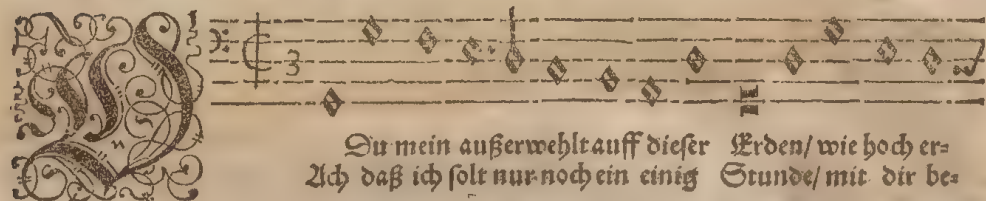 Du mein außerwehlt auff dieſer Erden/ wie hoch er⸗
Ach daß ich ſolt nur noch ein einig Stunde/ mit dir be⸗